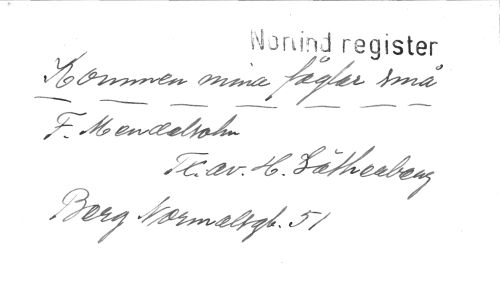 Norlind register
Kommen mina fåglar små
F. Mendelsohn
Tl. av. H. Säthenberg
Berg Normalsgb. 51